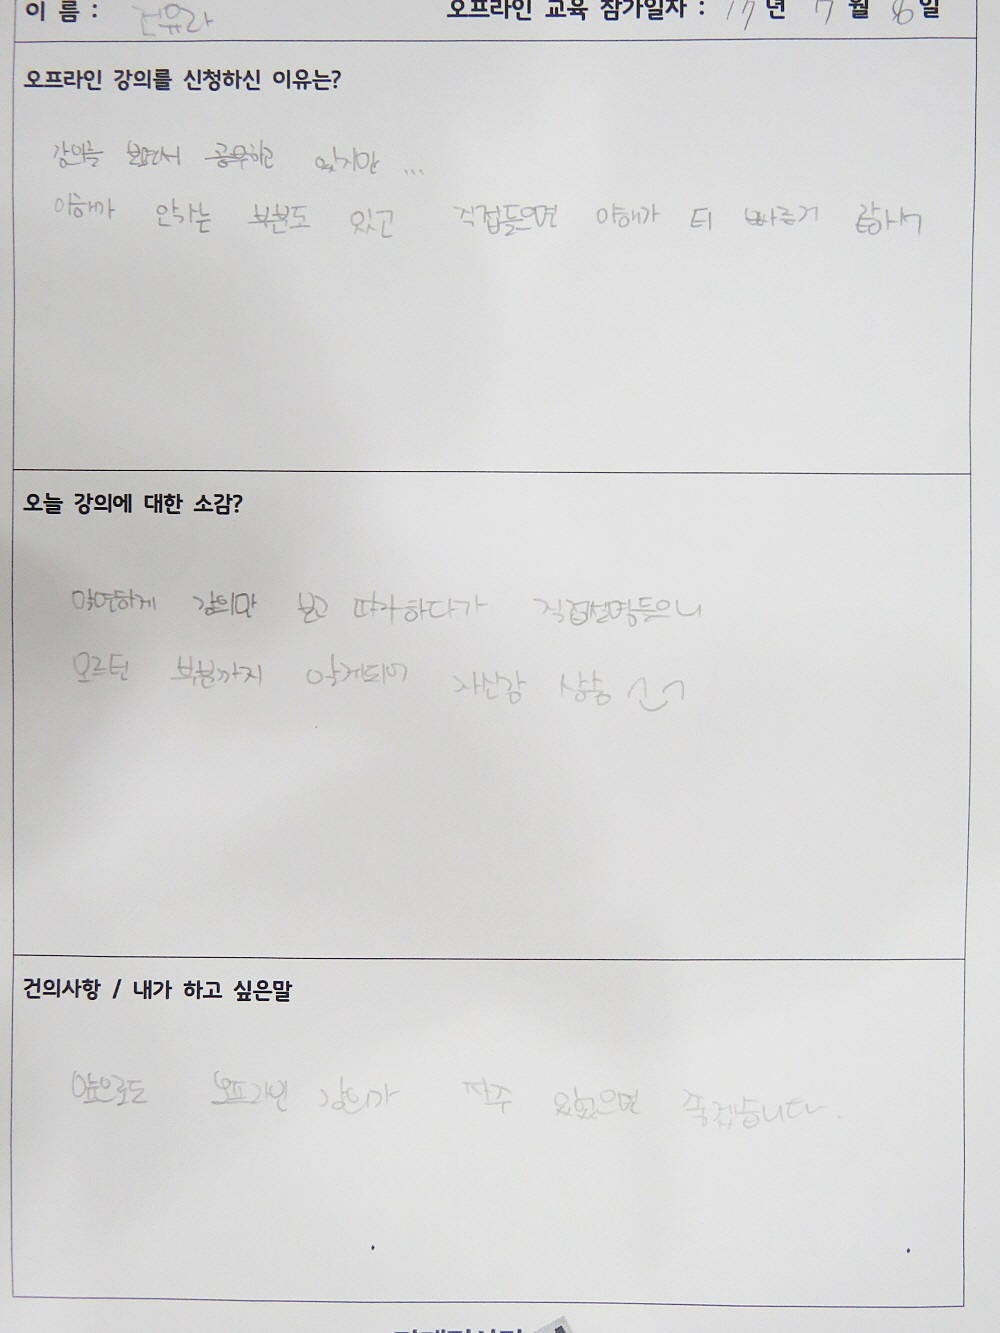 이 름 : 전유라 오프라인 교육 참가일자 : 17 년 7 월 6 일
오프라인 강의를 신청하신 이유는?
강의를 보면서 공부하고 있지만 ...
이해가 안가는 부분도 있고 직접들으면 이해가 더 빠를거
오늘 강의에 대한 소감?
막연하게 강의만 보고 따라하다가 직접설명들으니
모르던 부분까지 알게되어 자신감 상승
건의사항 / 내가 하고 싶은말
앞으로도 오프라인 강의가 자주 있었으면 좋겠습니다.